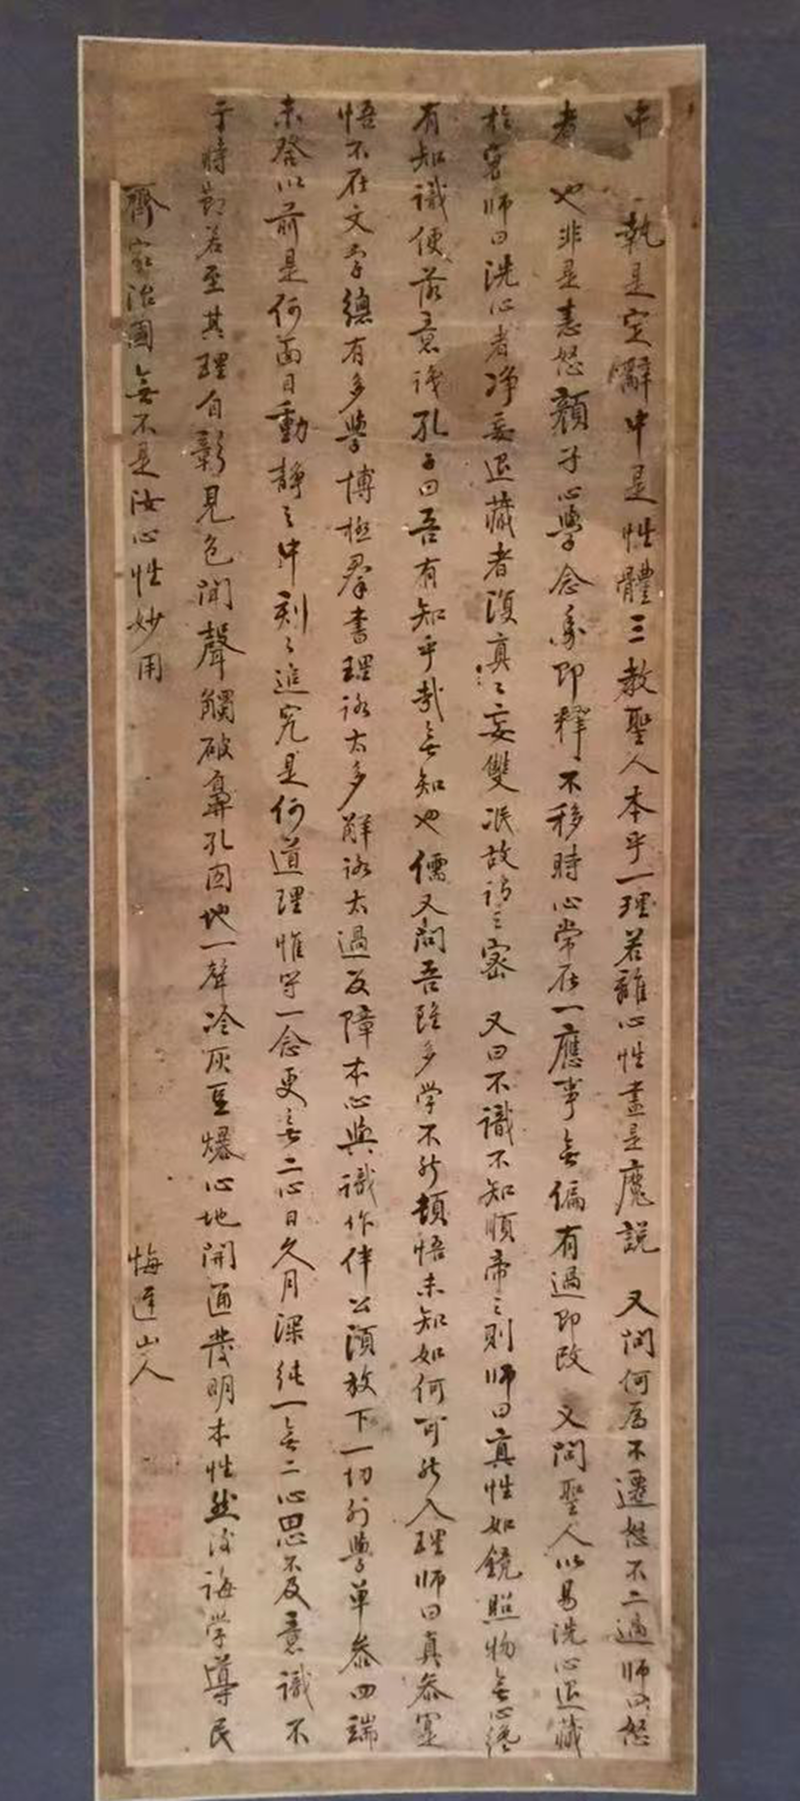 中 執是定辭中是性體三教聖人本乎一理若離心性盡是魔説 又問何為不遷怒不二過師曰怒
者 也非是恚怒顏子心學念動即釋不移時心常在一應事無偏有過即改 又問聖人以易洗心退藏
於密師曰洗心者净妄退藏者復真真妄雙泯故謂之密 又曰不識不知順帝之則師曰真性如鏡照物無心纔
有知識便落意識孔子曰吾有知乎哉無知也儒又問吾雖多学不能頓悟未知如何可能入理師曰真參實
悟不在文字縱有多學博極羣書理路太多解路太過反障本心與識作伴公須放下一切外學单參四端
未發以前是何面目動靜之中刻刻追究是何道理惟守一念更無二心日久月深純一無二心思不及意識不
于時節若至其理自彰見色聞聲觸破鼻孔囙地一聲冷灰豆爆心地開通發明本性然後誨学導民
齊家治國無不是汝心性妙用
悔遲山人